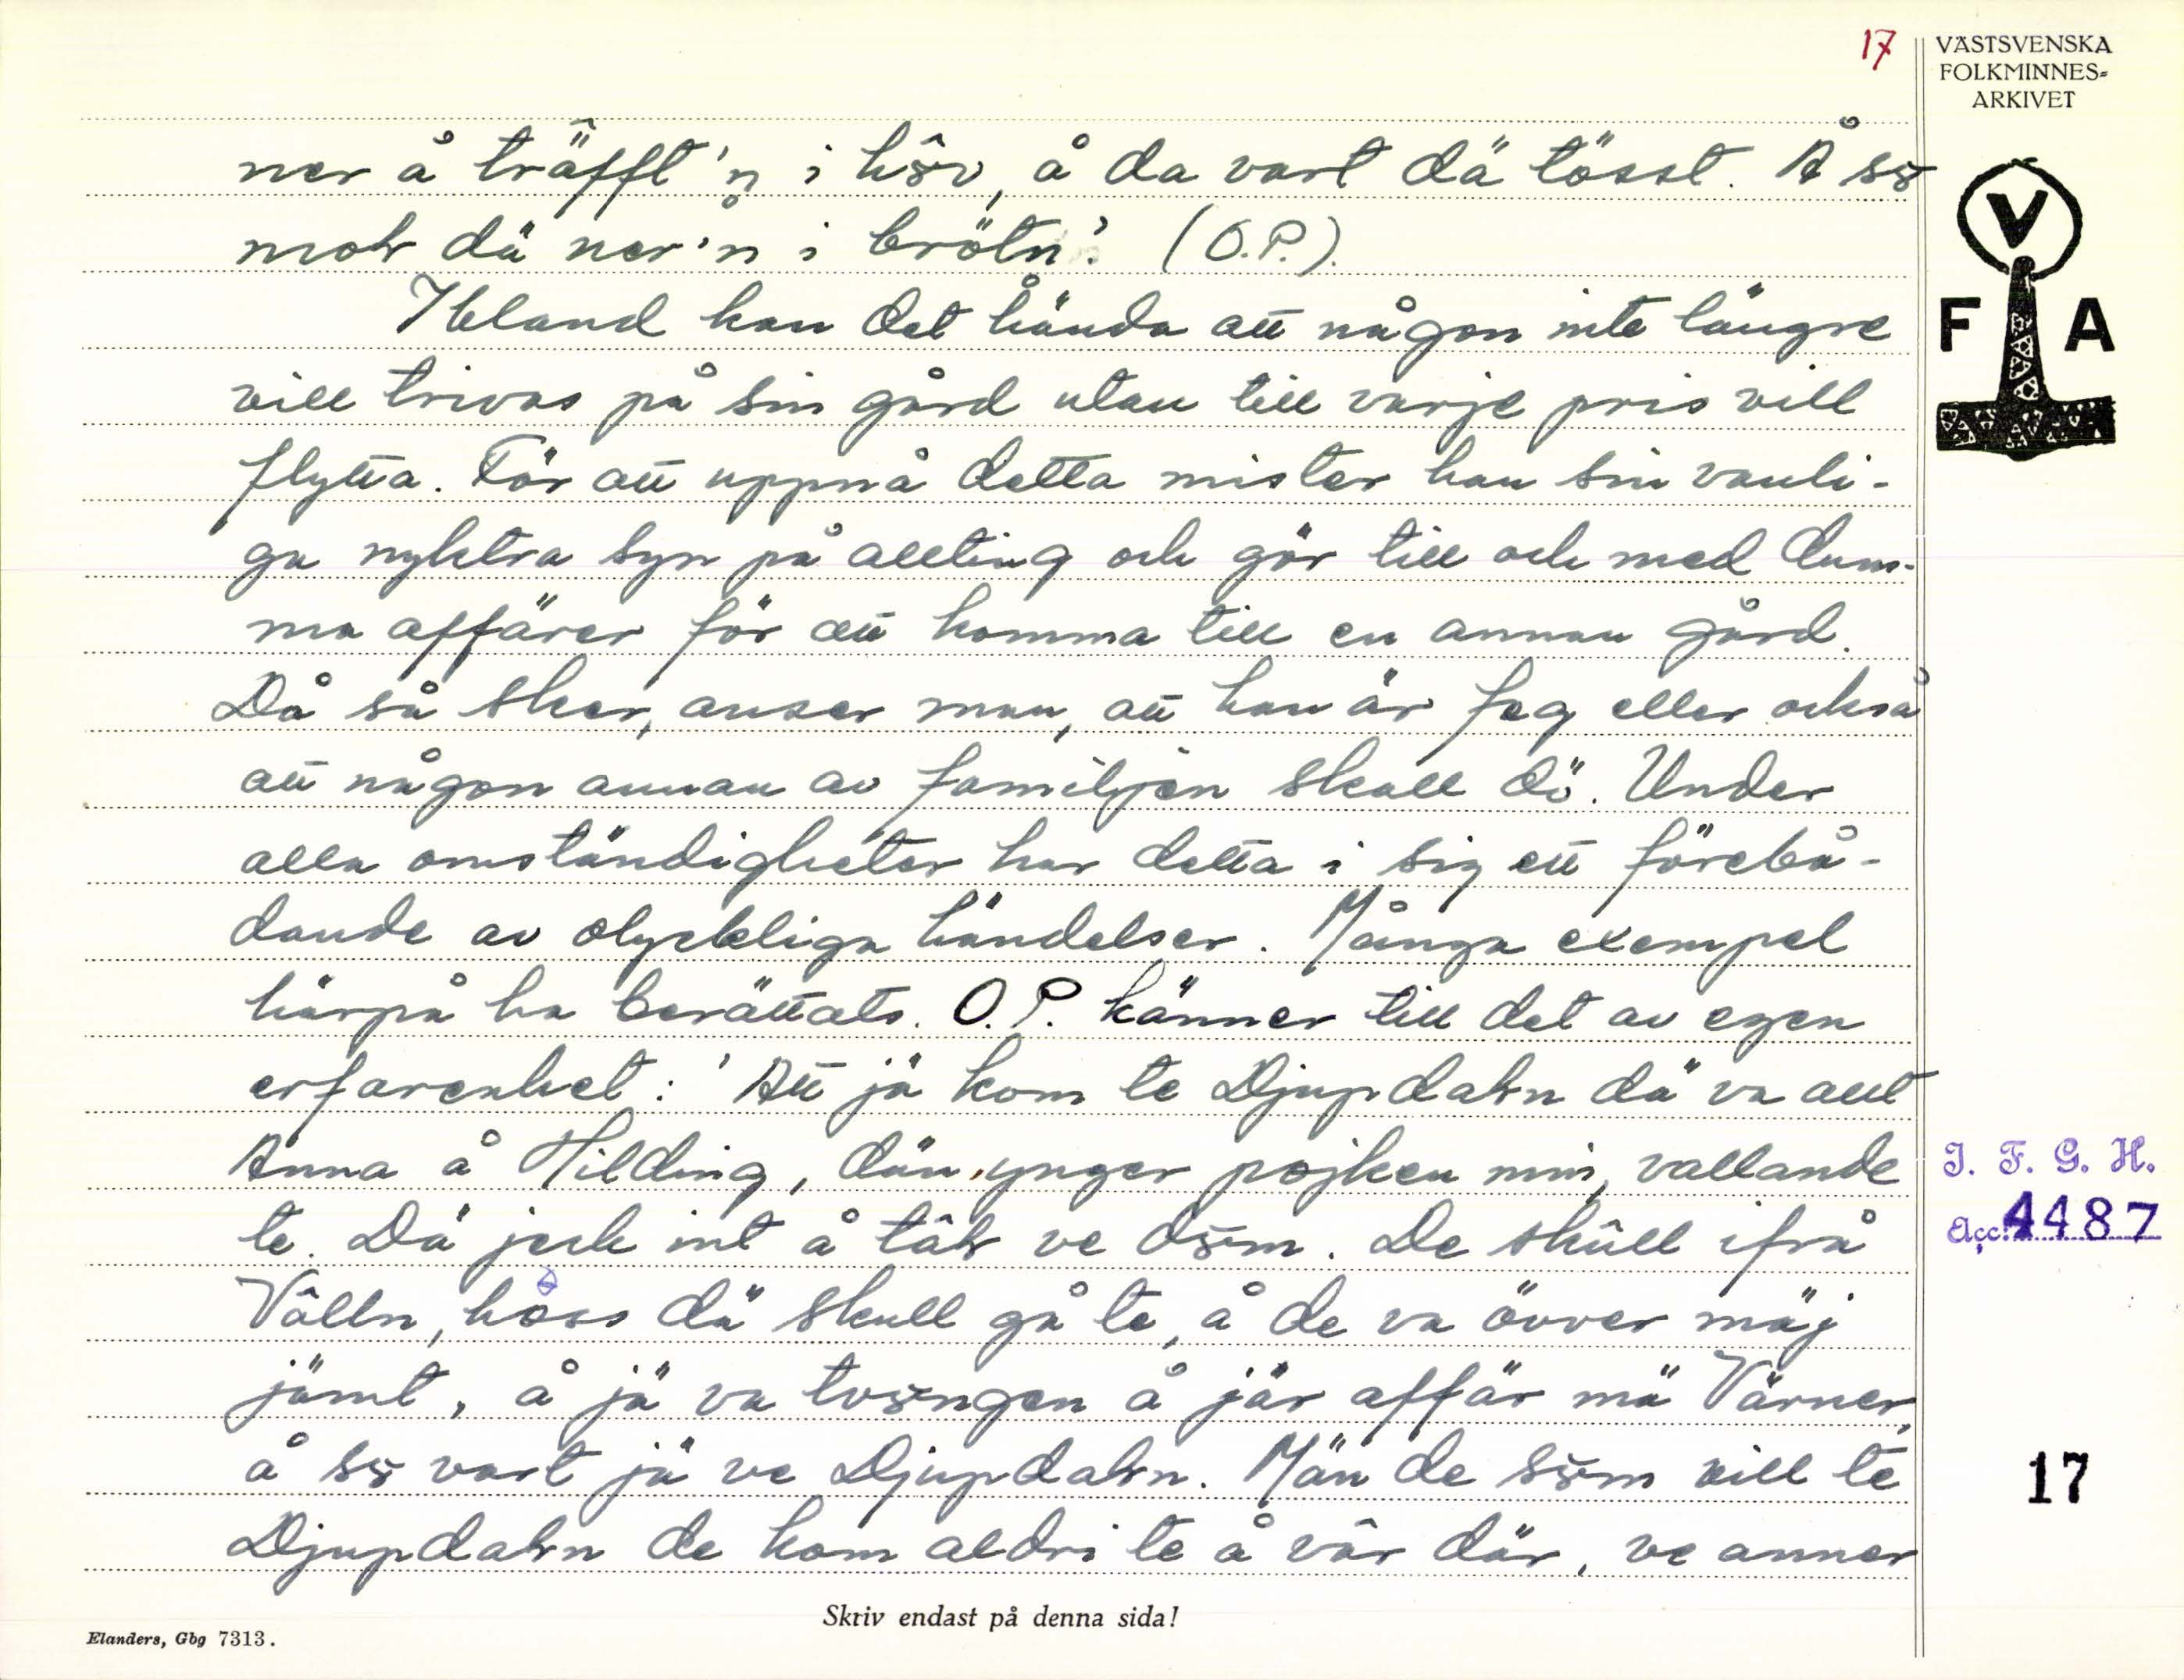 17
VÄSTSVENSKA
FOLKMINNES=
ARKIVET
ner å träfft'n i hôv, å da vart dä tösst. Å sô
moh dä ner'n i brötn'. (O.P.).
V
F A
Ibland kan det hända att någon inte längre
vill trivas på sin gård utan till varje pris vill
flytta. För att uppnå detta mister han sin vanli-
ga nyktra syn på allting och gör till och med dum-
ma affärer för att komma till en annan gård.
Då så sker, anser man, att han är feg eller också
att någon annan av familjen skall dö. Under
alla omständigheter har detta i sig ett förebå-
dande av olyckliga händelser. Många exempel
härpå ha berättats. O.P. känner till det av egen
erfarenhet: 'Att jä kom te Djupdahn dä va allt
Anna å Hilding, dän ynger pojken min, vallande
te. Dä jeck int å tâh ve dôm. De skûll ifrå
Vâlln, hoss dä skull gå te, å de va övver mäj
jämt, å jä va tvôngen å jär affär mä Värner,
å sô vart jä ve Djupdahn. Män de sôm vill te
Djupdahn de kom aldri te å vâr där, ve anner
I. F. G. H.
Acc. 4487
17
Skriv endast på denna sida!
Elanders, Gbg 7313.